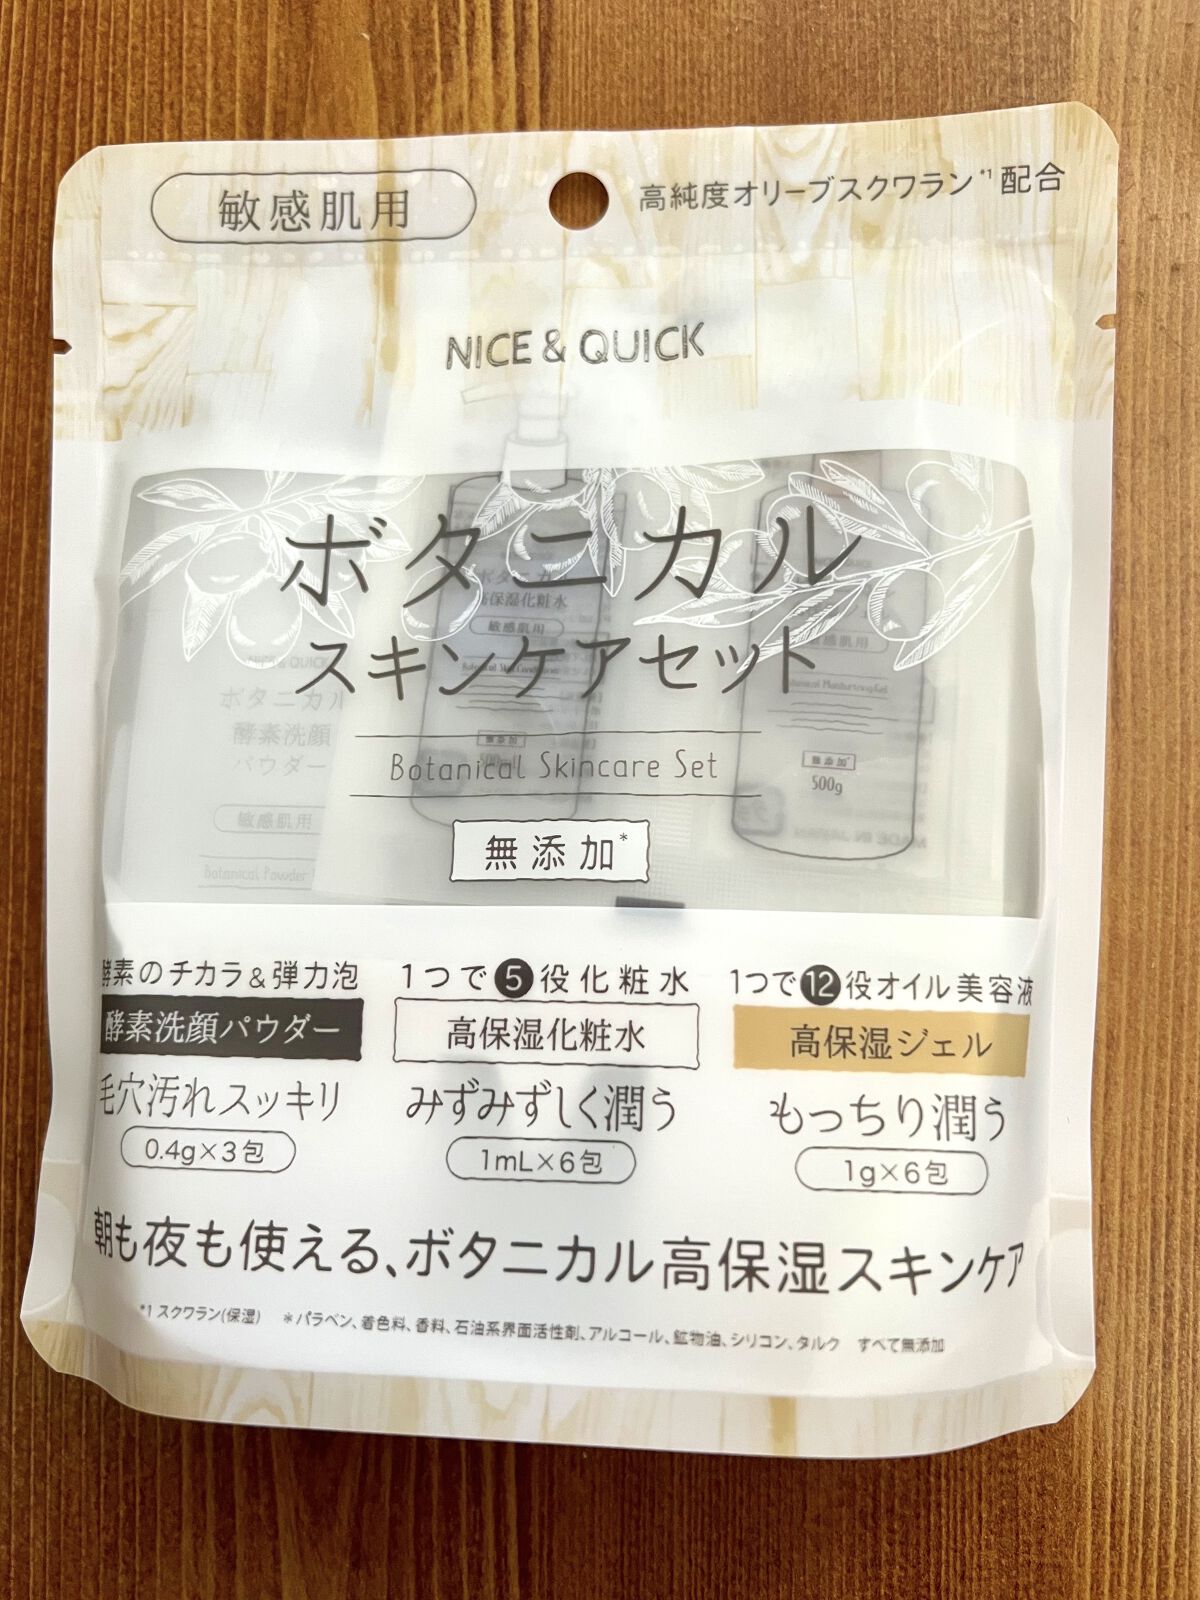 敏感肌用
高純度オリーブスクワラン*1配合
NICE & QUICK
ボタニカル
スキンケアセット
Botanical Skincare Set
無添加*
保湿化粧水
敏感肌用
無添加
500g
NICE & QUICK
ボタニカル
酵素洗顔
パウダー
敏感肌用
Botanical Powder
酵素のチカラ&弾力泡
酵素洗顔パウダー
毛穴汚れスッキリ
0.4g×3包
1つで5役化粧水
高保湿化粧水
みずみずしく潤う
1mL×6包
1つで12役オイル美容液
高保湿ジェル
もっちり潤う
1g×6包
朝も夜も使える、ボタニカル高保湿スキンケア
*1 スクワラン(保湿) *パラベン、着色料、香料、石油系界面活性剤、アルコール、鉱物油、シリコン、タルク すべて無添加